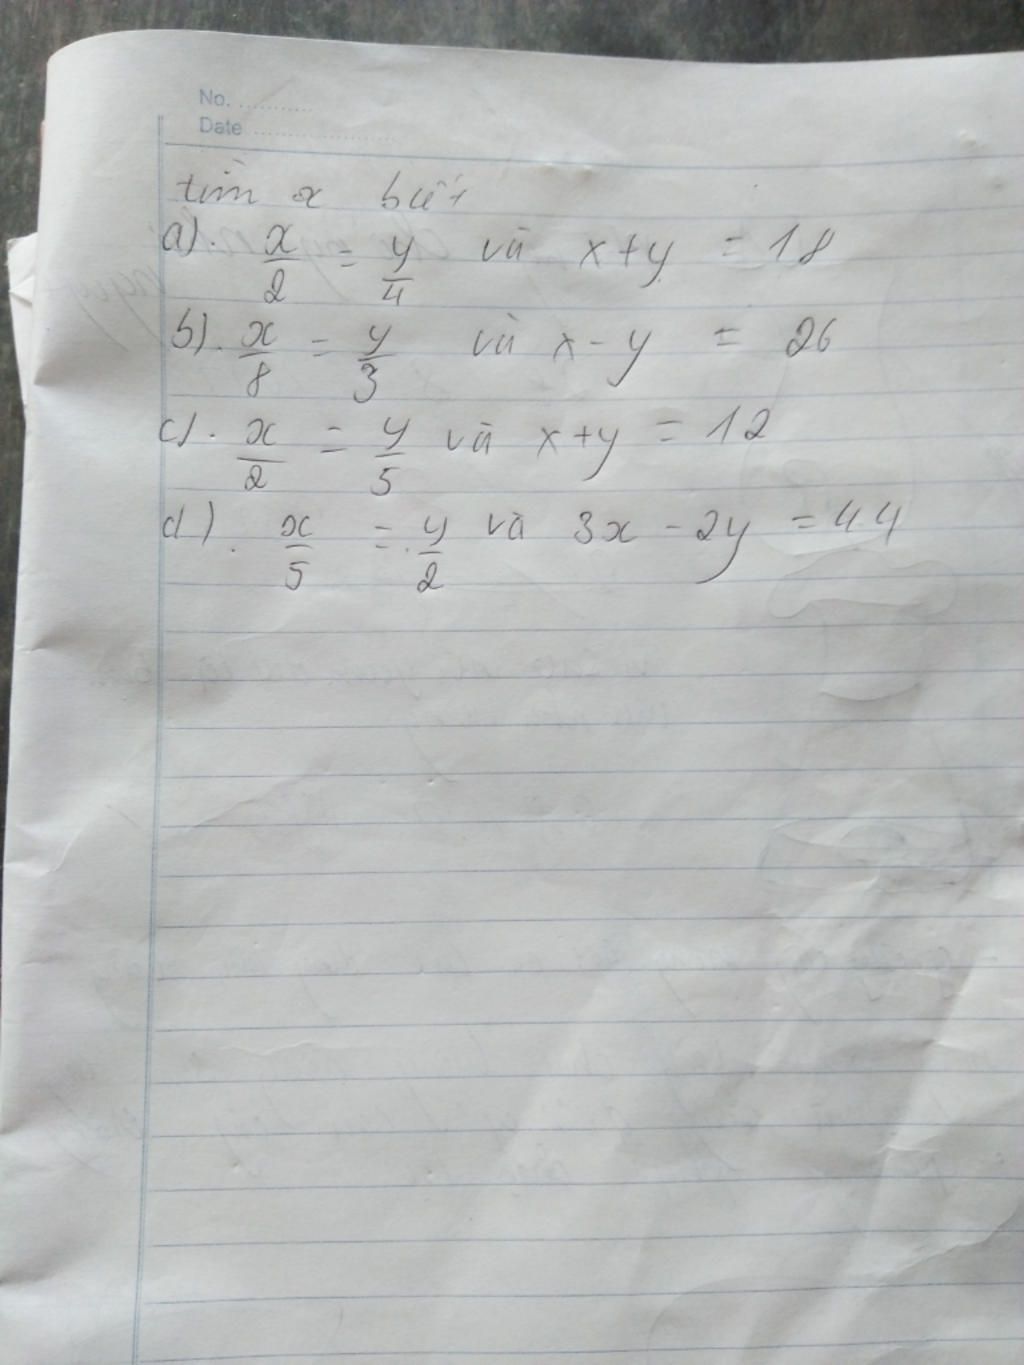 No. ............
Date ......................
tìm x biết
a). x/2 = y/4 và x+y = 18
b). x/8 = y/3 và x-y = 26
c). x/2 = y/5 và x+y = 12
d). x/5 = y/2 và 3x - 2y = 44